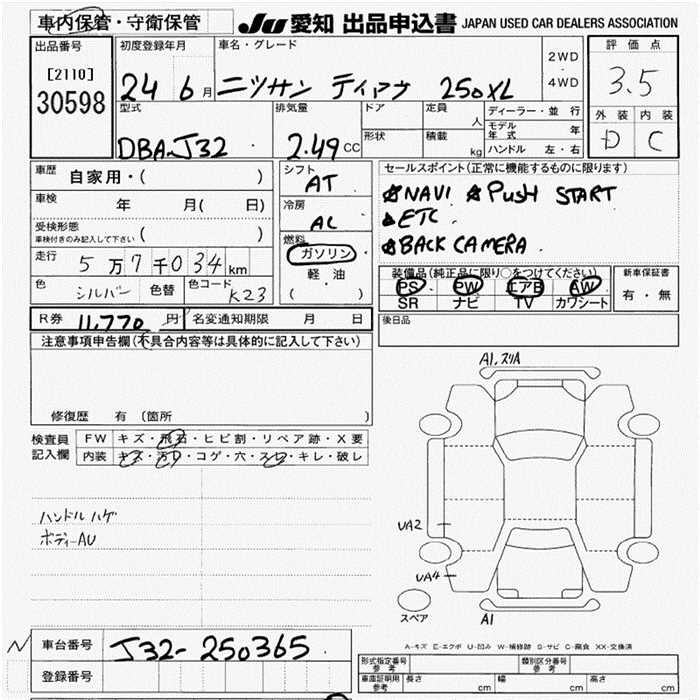 車内保管・守衛保管 JU 愛知 出品申込書 JAPAN USED CAR DEALERS ASSOCIATION
出品番号 [2110] 30598
初度登録年月 24 6月
車名・グレード ニッサン ティアナ 250XL
2WD・4WD
評価点 3.5
外装 D 内装 C
型式 DBA-J32
排気量 2.49 CC
ドア 定員 人
形状 積載 kg
ディーラー・並行
モデル年式 年
ハンドル 左・右
車歴 自家用・( )
車検 年 月( 日)
受検形態 車検付きのみ記入して下さい ( )
走行 5万7千034km
色 シルバー 色替 色コード K23
シフト AT
冷房 AC
燃料 ガソリン・軽油 ( )
セールスポイント(正常に機能するものに限ります)
☆NAVI ☆PusH START
☆ETC
☆BACK CAMERA
装備品(純正品に限り○をつけてください)
PS PW エアB AW
SR ナビ TV カワシート
新車保証書 有・無
R券 11,770円 名変通知期限 月 日
後日品
注意事項申告欄(不具合内容等は具体的に記入して下さい)
修復歴 有 (箇所 )
検査員記入欄
FW キズ・飛石・ヒビ割・リペア跡・X要
内装 キズ・汚れ・コゲ・穴・スレ・キレ・破レ
ハンドルハゲ
ボディーAU
A1.スリA
UA2
UA4
スペア
A1
A-キズ E-エクボ U-凹み W-補修跡 S-サビ C-腐食 XX-交換済
車台番号 J32-250365
登録番号
型式指定番号 参考 類別区分番号 参考
車庫証明用 参考 長さ cm 幅 cm 高さ cm